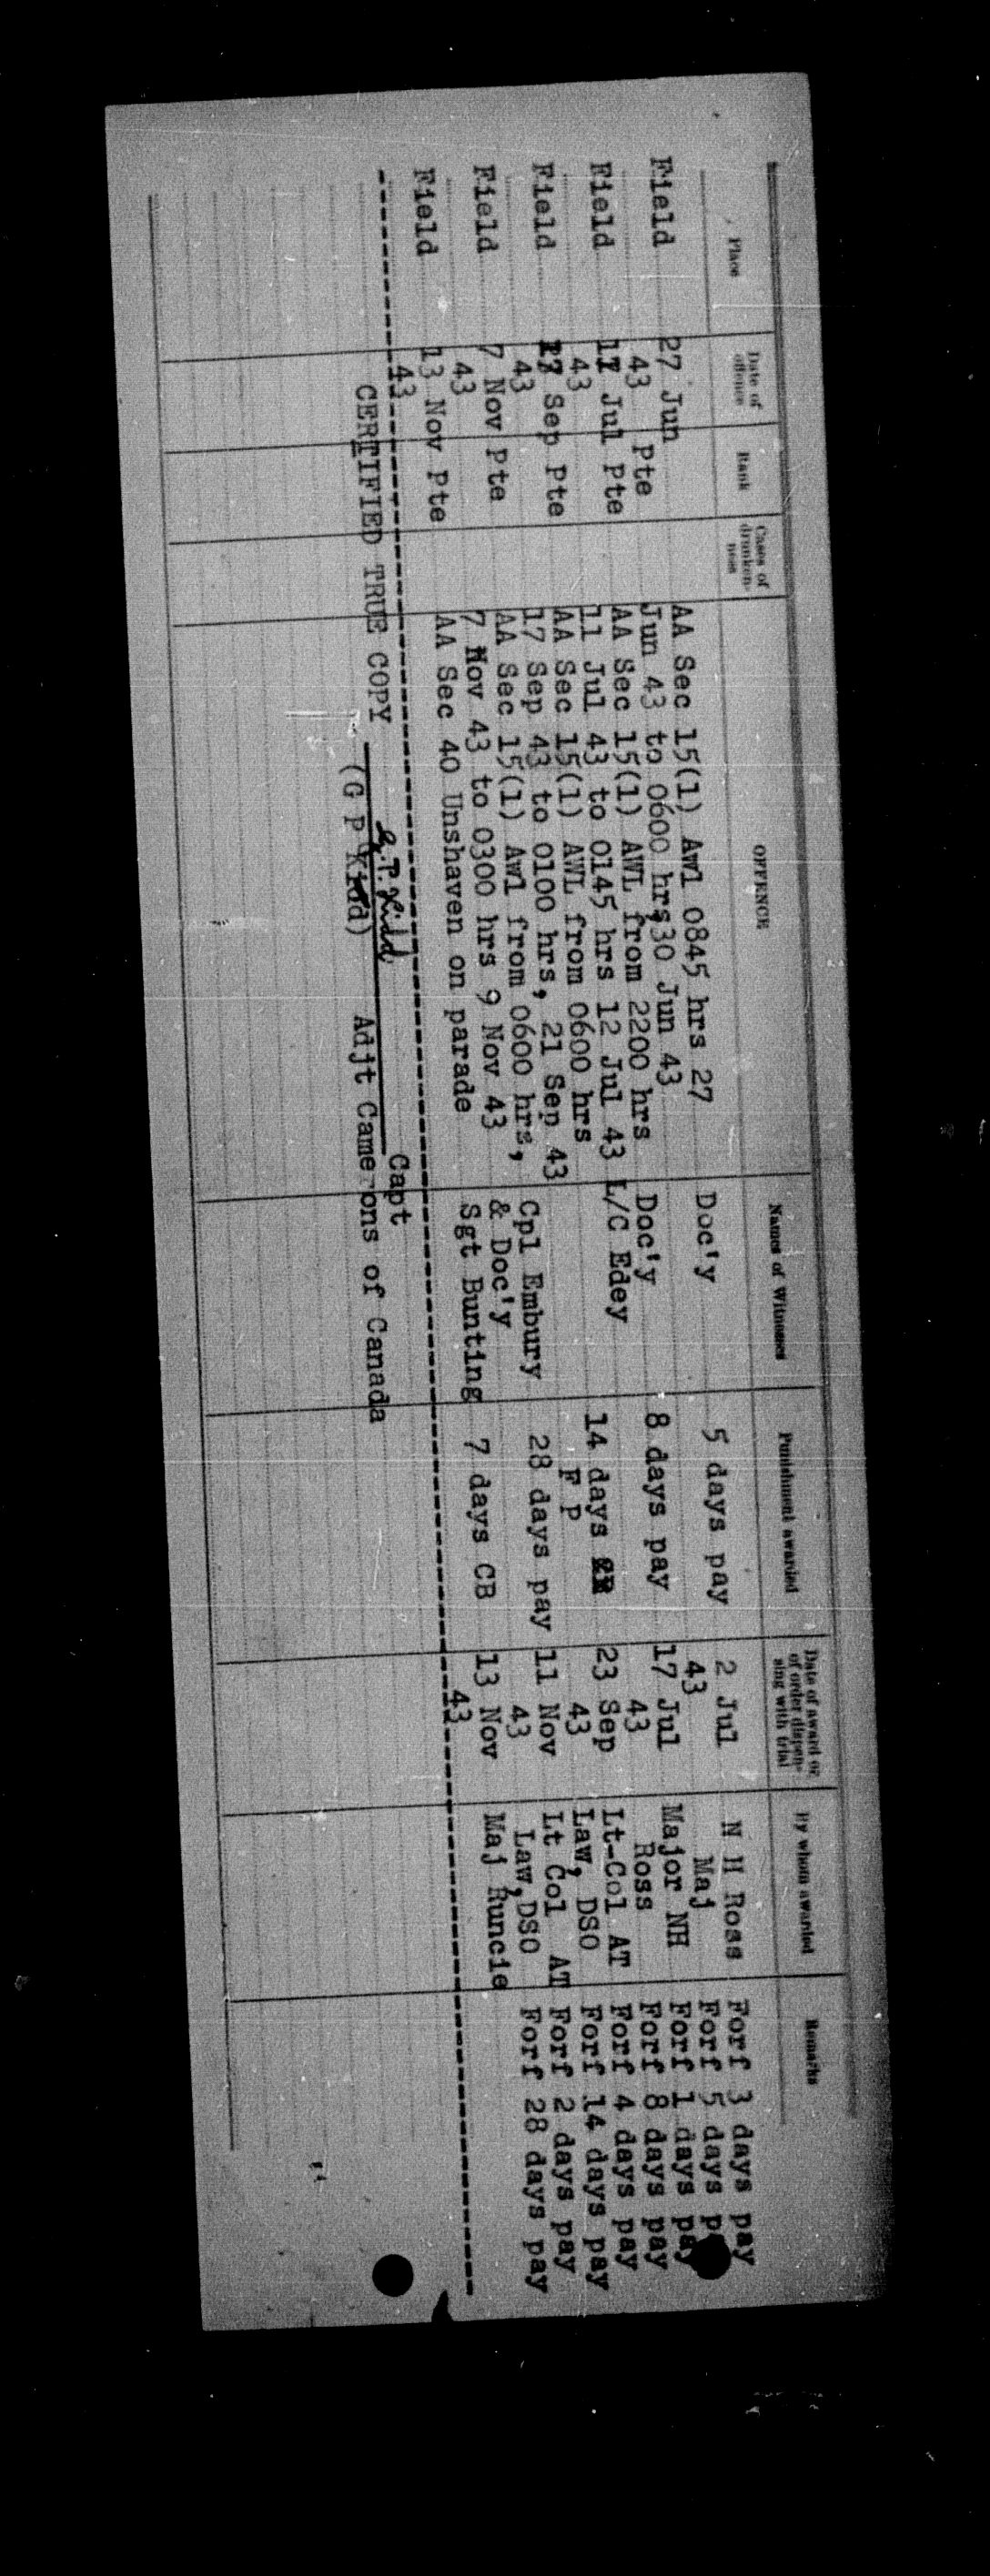 Place Date of offence Rank Cases of drunken-ness OFFENCE Names of Witnesses Punishment awarded Date of award or of order dispen-sing with trial By whom awarded Remarks
Field 27 Jun AA Sec 15(1) Awl 0845 hrs 27 Doc'y 5 days pay 2 Jul N H Ross Forf 3 days pay
43 Pte Jun 43 to 0600 hrs,30 Jun 43 43 Maj Forf 5 days
Field 11 Jul Pte AA Sec 15(1) AWL from 2200 hrs Doc'y 8 days pay 17 Jul Major NH Forf 1 days pay
43 11 Jul 43 to 0145 hrs 12 Jul 43 L/C Edey 43 Ross Forf 8 days pay
Field 17 Sep Pte AA Sec 15(1) AWL from 0600 hrs 14 days 23 Sep Lt-Col AT Forf 4 days pay
43 17 Sep 43 to 0100 hrs, 21 Sep 43 F P 43 Law, DSO Forf 14 days pay
Field 7 Nov Pte AA Sec 15(1) Awl from 0600 hrs, Cpl Embury 28 days pay 11 Nov Lt Col AT Forf 2 days pay
43 7 Nov 43 to 0300 hrs 9 Nov 43 & Doc'y 43 Law,DSO Forf 28 days pay
Field 13 Nov Pte AA Sec 40 Unshaven on parade Sgt Bunting 7 days CB 13 Nov Maj Runcie
43 43
CERTIFIED TRUE COPY G.P. Kidd Capt
(G P Kidd) Adjt Camerons of Canada